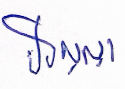 ปริญญา